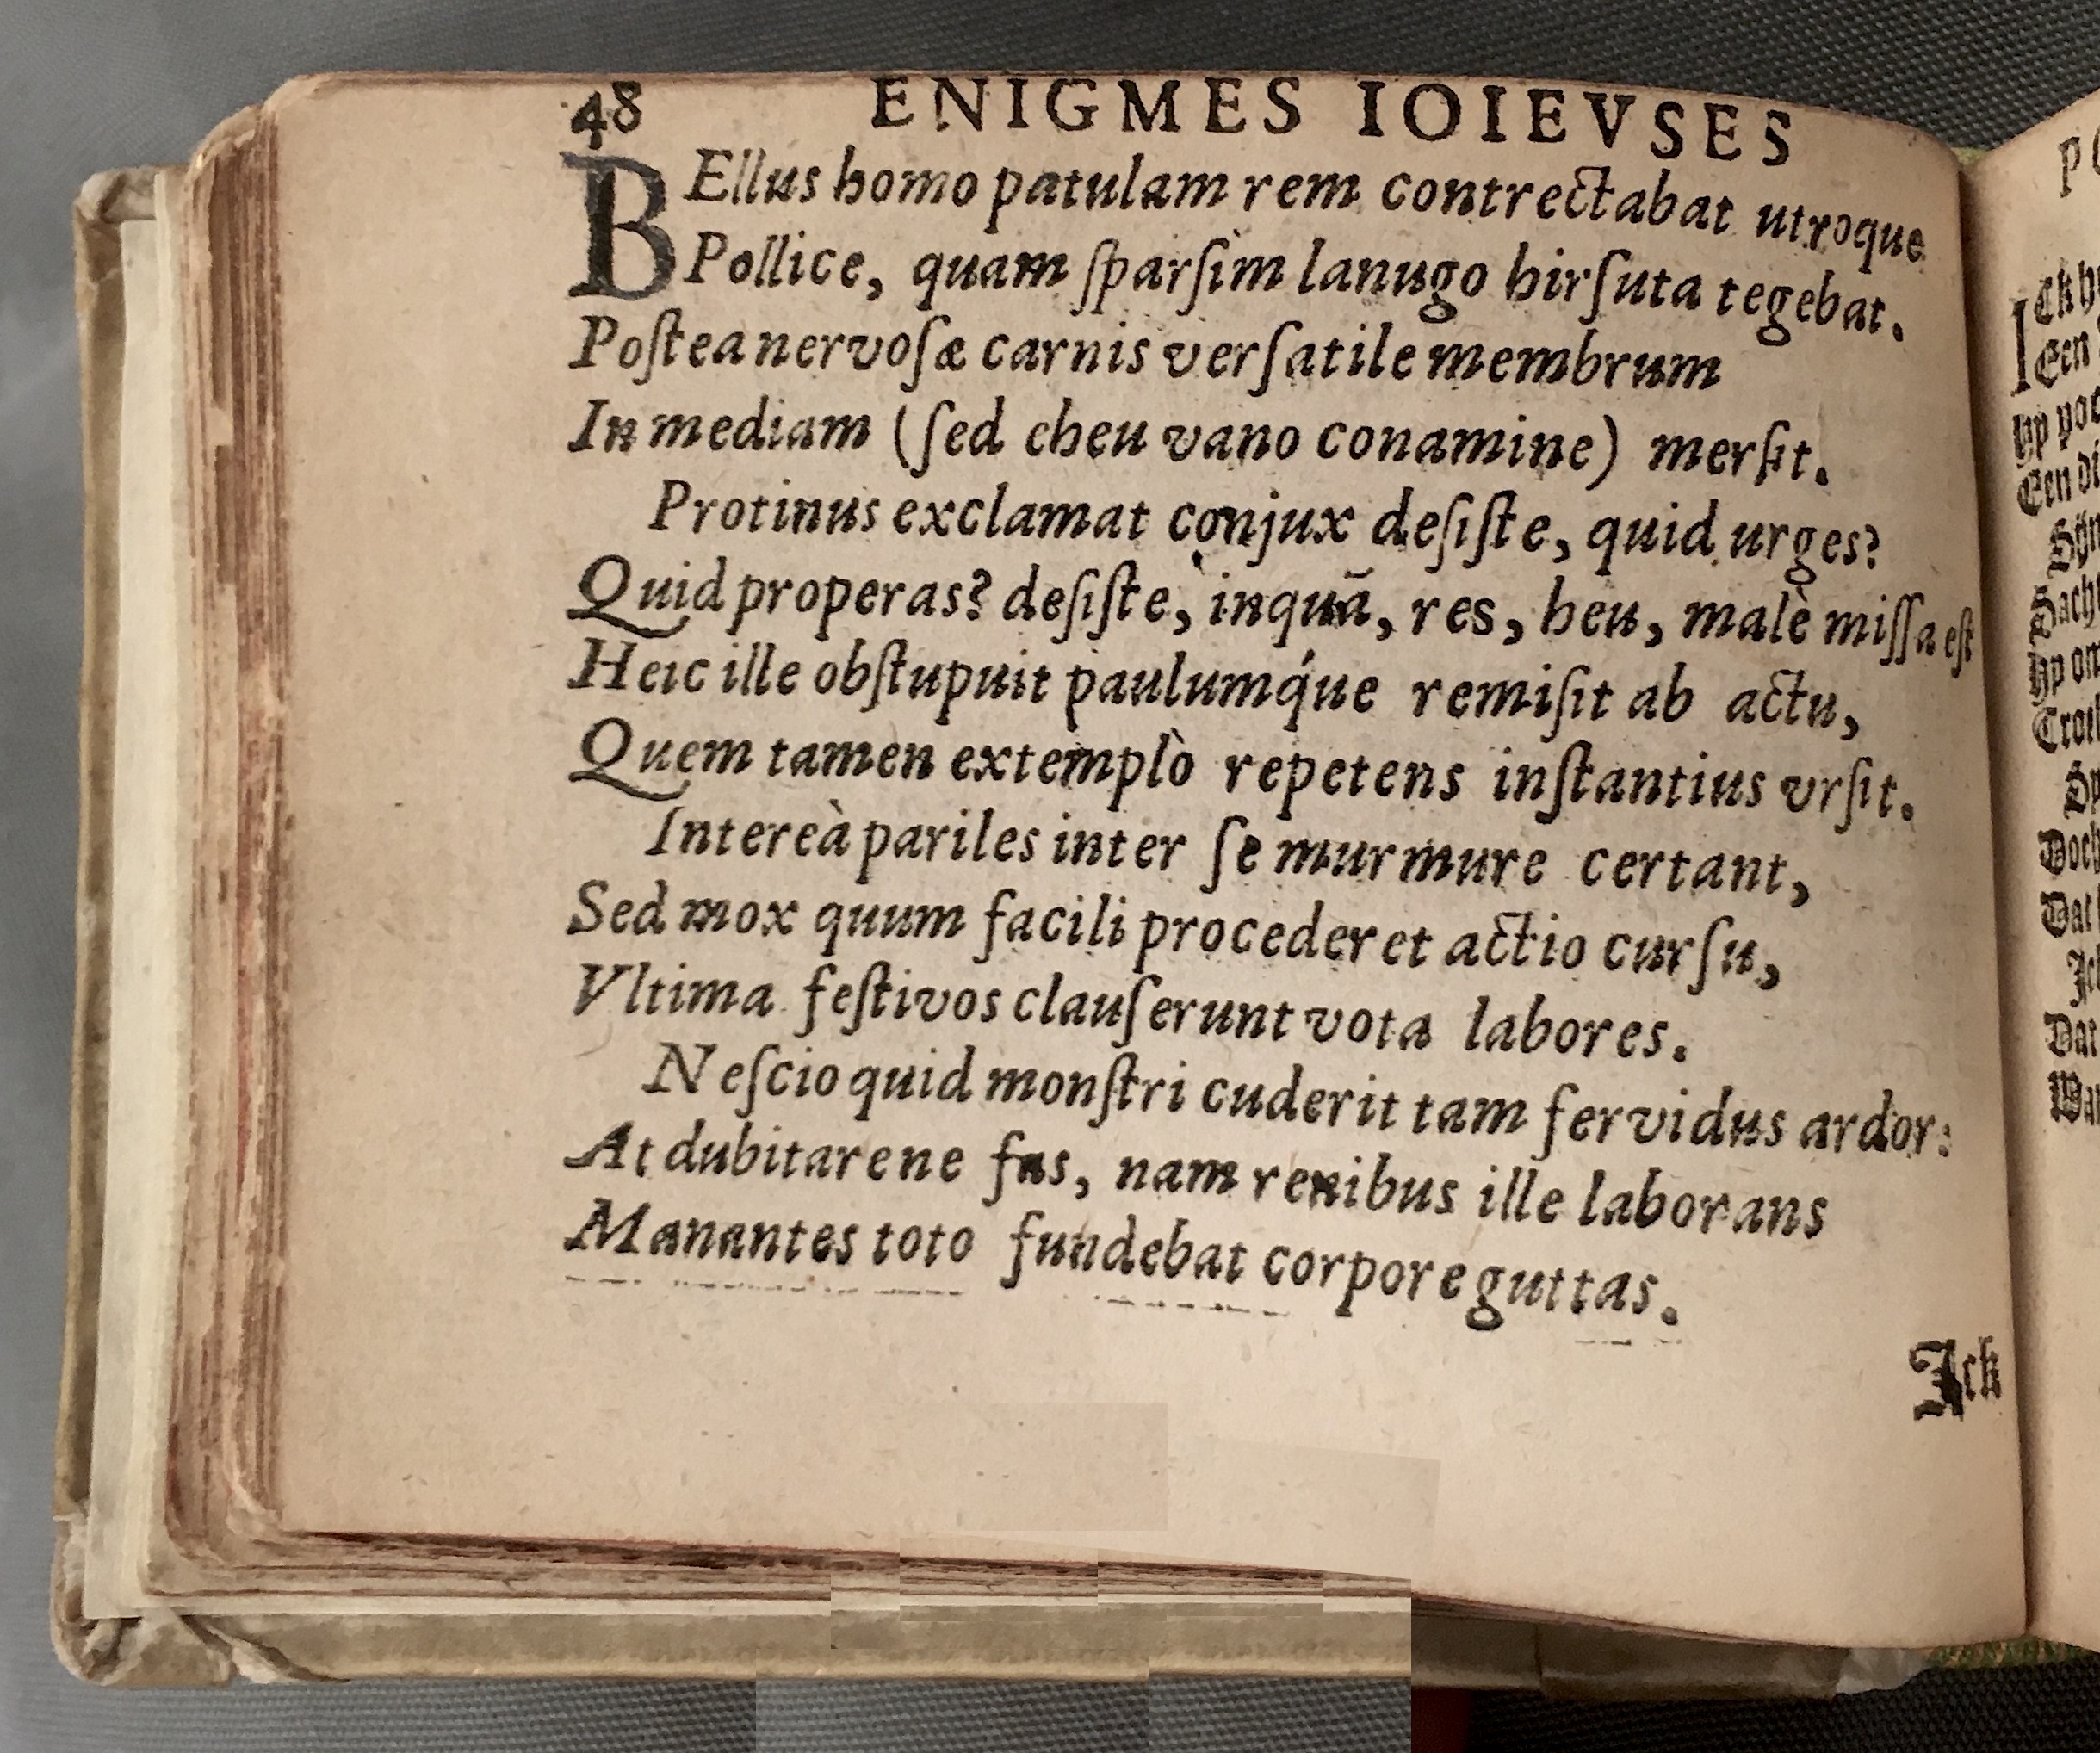 48 ENIGMES IOIEVSES
BEllus homo patulam rem contrectabat utroque
Pollice, quam ſparſim lanugo hirſuta tegebat.
Poſtea nervoſæ carnis verſatile membrum
In mediam (ſed eheu vano conamine) merſit.
Protinus exclamat conjux deſiſte, quid urges?
Quid properas? deſiſte, inquã, res, heu, malè miſſa eſt
Heic ille obſtupuit paulumq́ue remiſit ab actu,
Quem tamen extemplò repetens inſtantius vrſit.
Intereà pariles inter ſe murmure certant,
Sed mox quum facili procederet actio curſu,
Vltima feſtivos clauſerunt vota labores.
Neſcio quid monſtri cuderit tam fervidus ardor:
At dubitare ne fas, nam renibus ille laborans
Manantes toto fundebat corpore guttas.
Ick